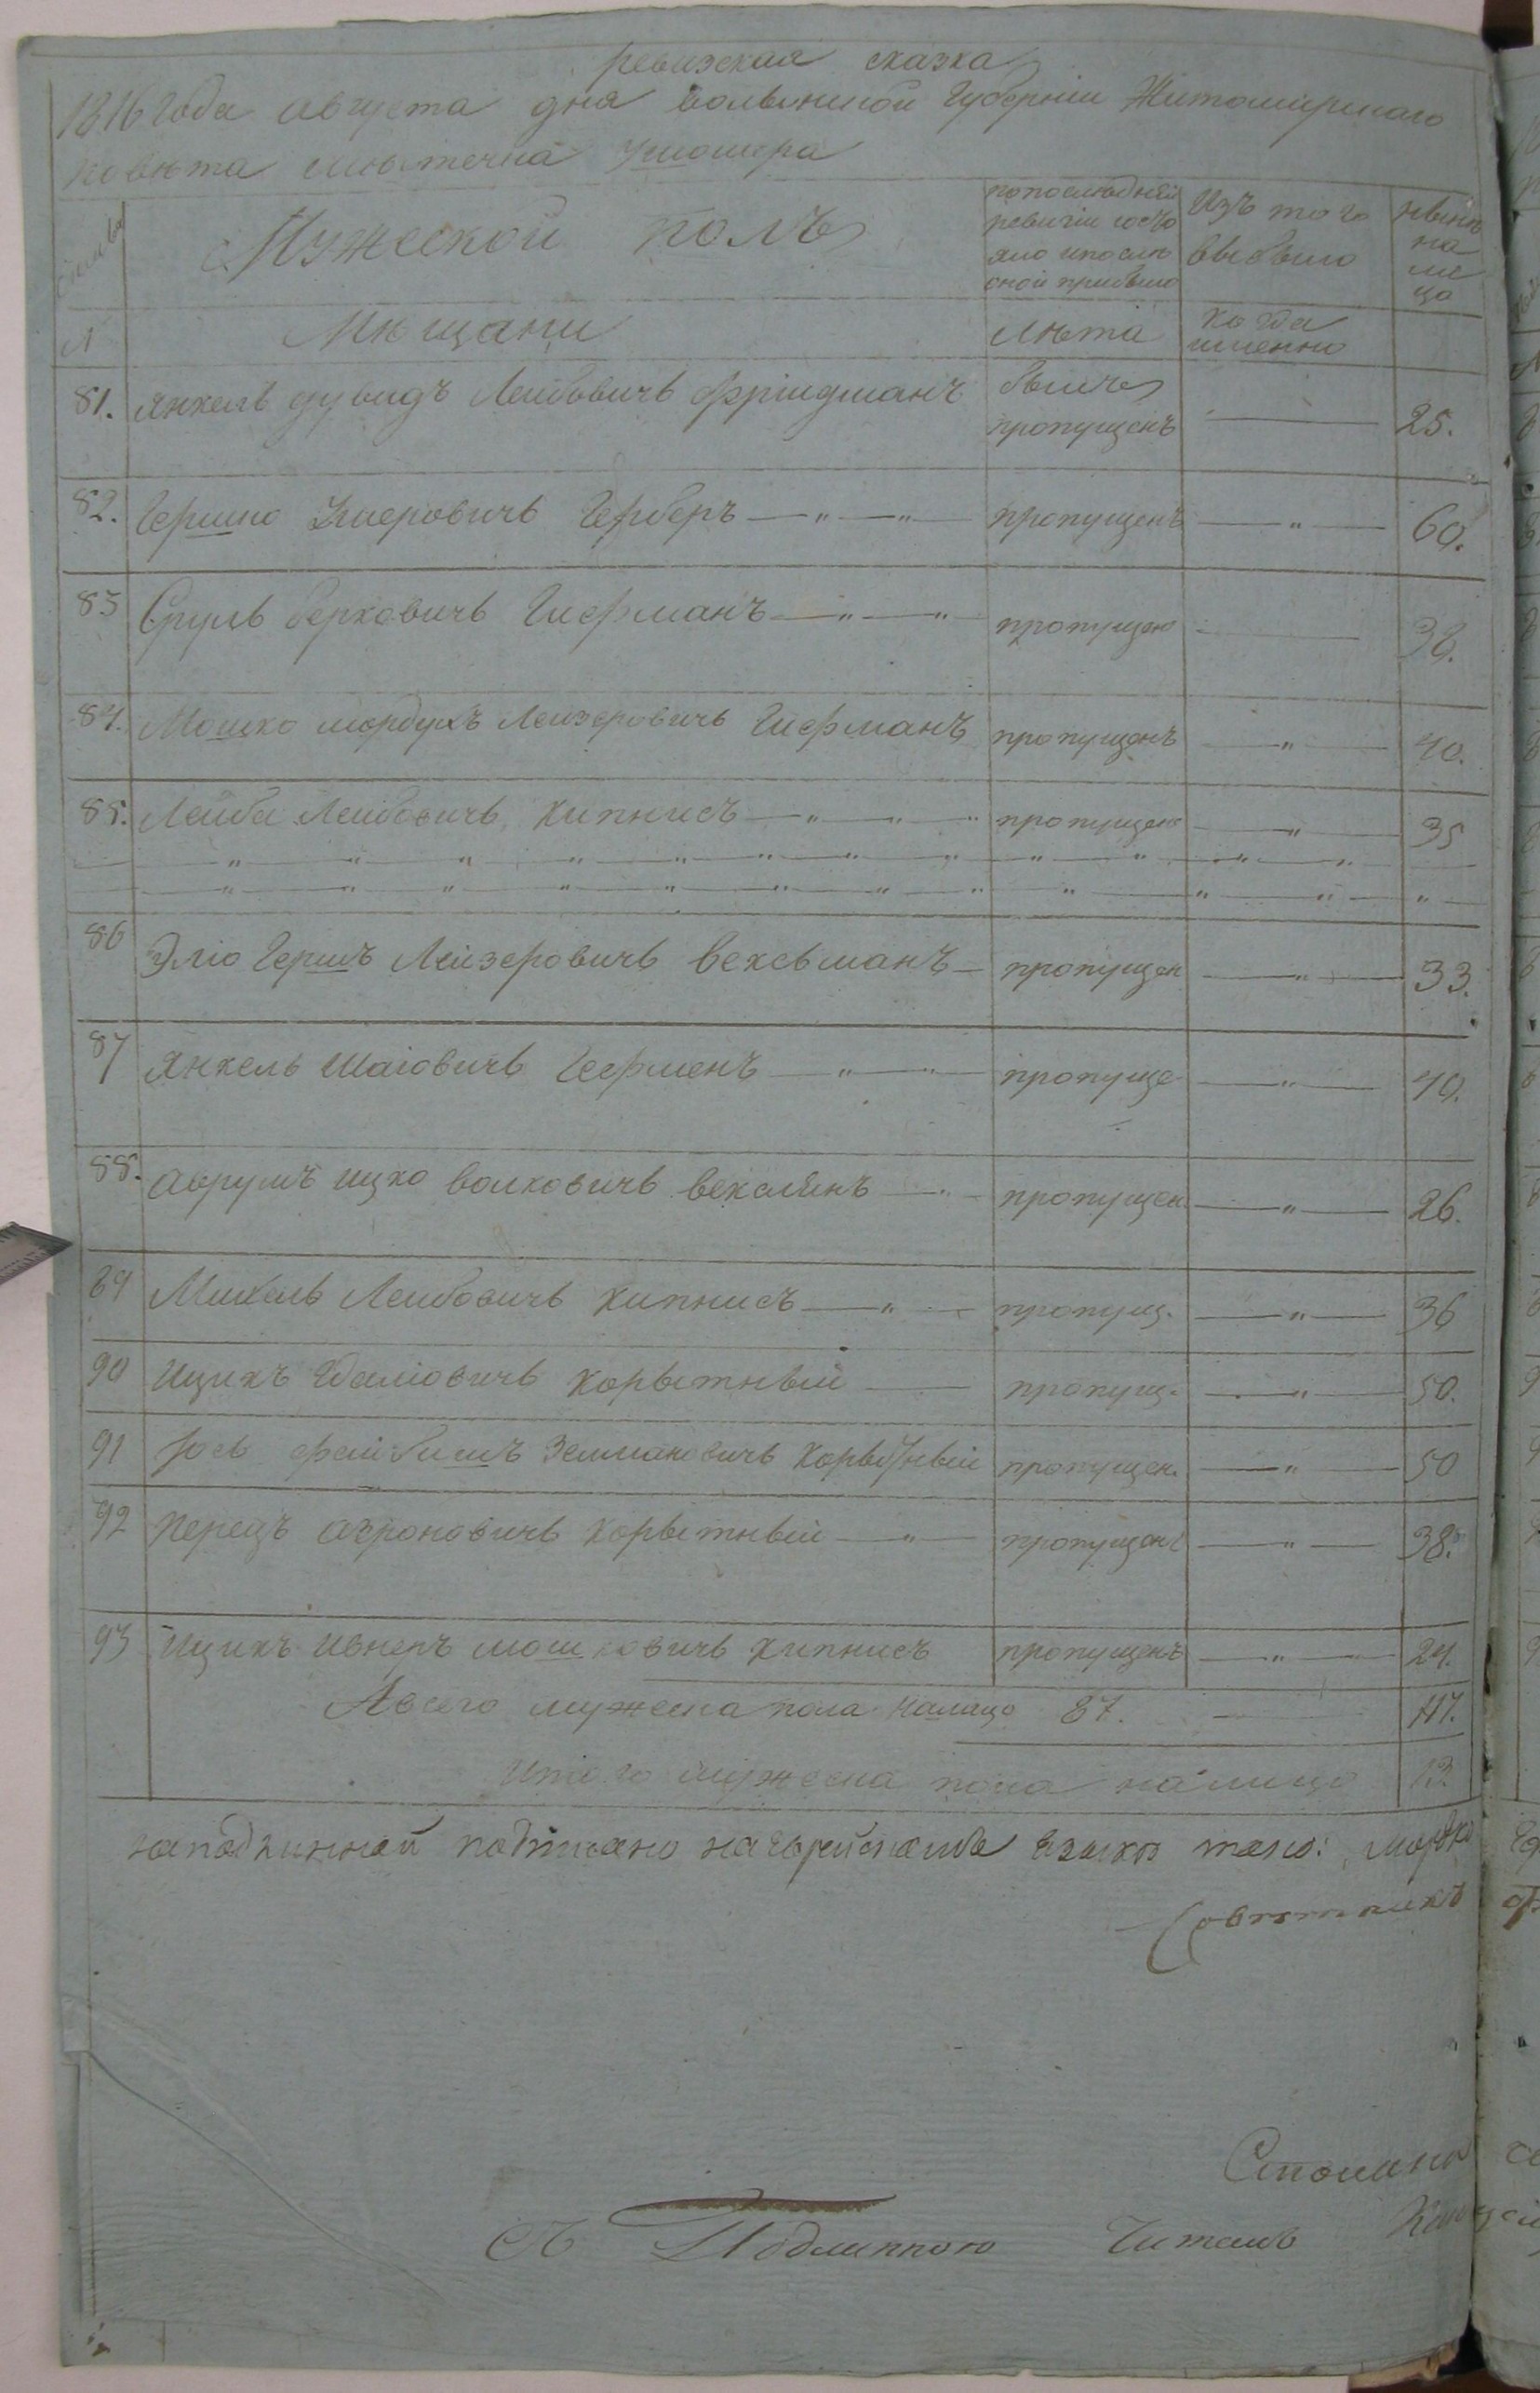 ревизская сказка
1816 года августа дня волынской Губернии Житомирского
повѣта мѣстечка Ушомира
Мужеской полъ
по последней ревизии состояло и после оной прибыло
Изъ того выбыло
нынѣ на лицо
№ Мѣщани лѣта когда именно
81. Янкель дувидъ Лейбовичъ Фридманъ пропущенъ — 25.
82. Гершко Герберъ — " — " — пропущенъ — " — 60.
83 Сруль берковичъ Гисфманъ — " — " пропущен — 38.
84. Мошко мордухъ Лейзеровичъ Гисфманъ пропущенъ — " — 40.
85. Лейба Лейбовичъ Кипнисъ — " — " — " пропущен — " — 35
86 Эліо Гершъ Лейзеровичъ вексельманъ — пропущен — " — 33.
87 Янкель Шаіовичъ — " — " — пропуще — " — 40.
88. Аврумъ ицко волковичъ — " — пропущен. — " — 26.
89 Михель Лейбовичъ Кипнисъ — " — пропущ. — " — 36
90 Ицикъ Гдаліовичъ Корытный — пропущ. — " — 50.
91 Іось файбишъ Зелмановичъ Корытный пропущен. — " — 50
92 Перецъ аҳроновичъ Корытный — " — пропущенъ — " — 38.
93 Ицикъ мошковичъ Кипнисъ пропущенъ — " — 24.
Авсего мужеска пола налицо 87. —
Итого мужеска пола налицо 13.
наподлинной подписано наеврейскомъ языкѣ тако:
Совѣтникъ
Съ Подлиннымъ Читалъ